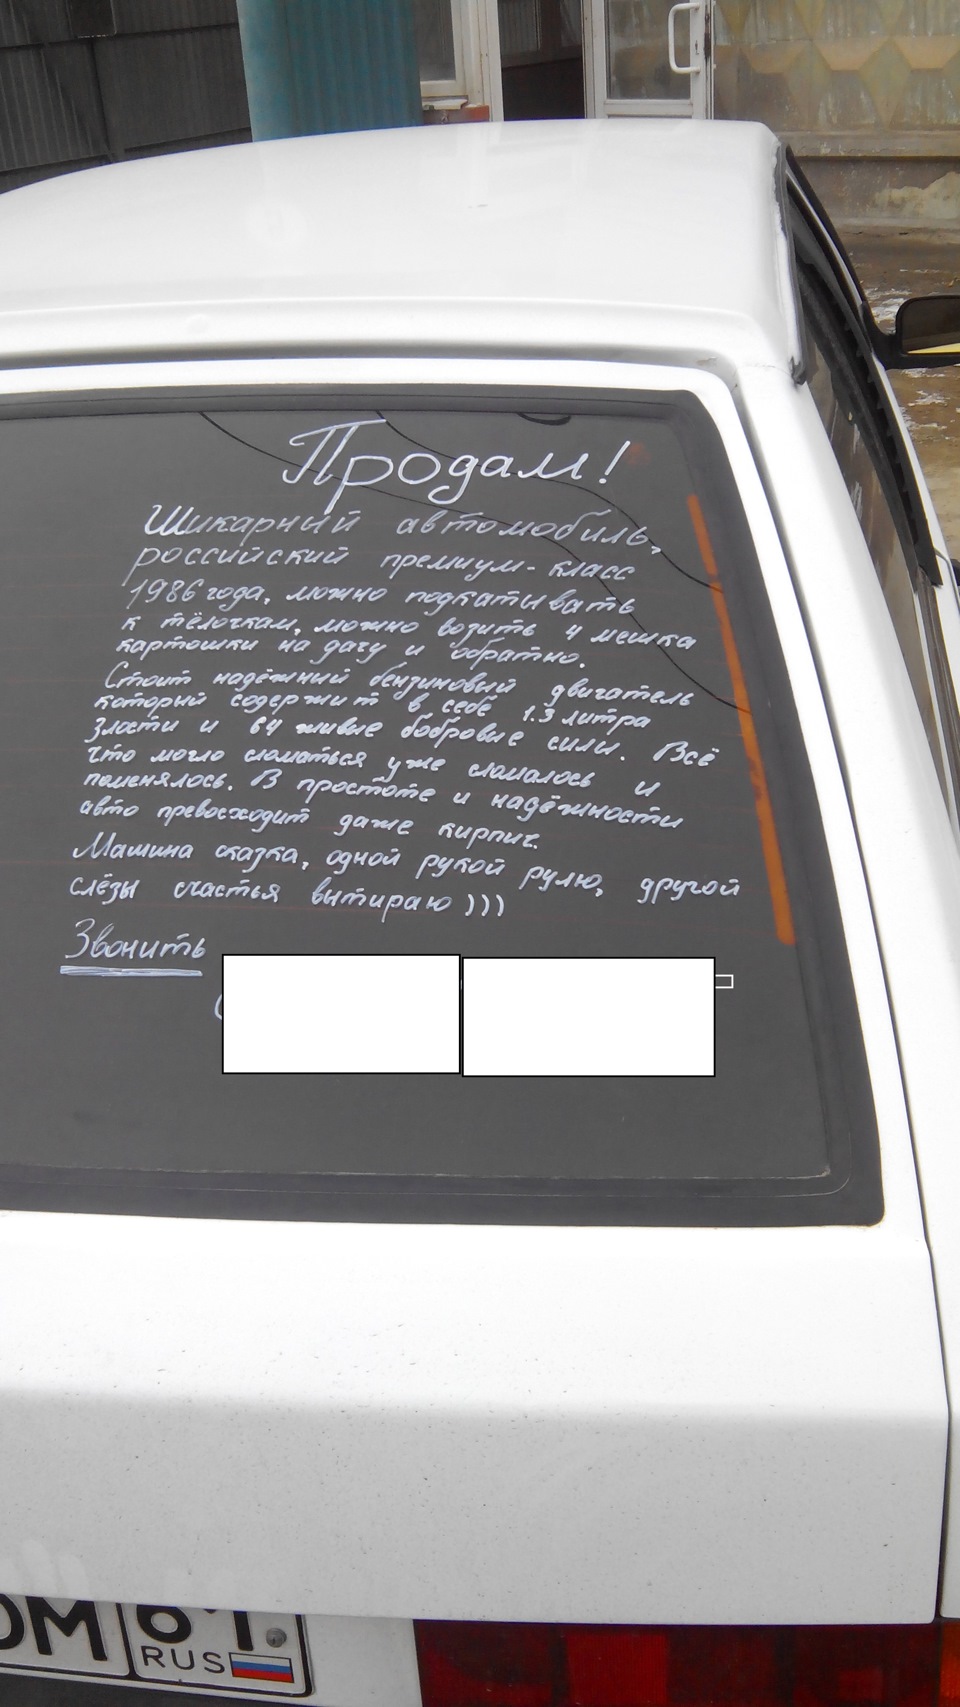 Продам!
Шикарный автомобиль,
российский премиум-класс
1986 года, можно подкатывать
к тёлочкам, можно возить 4 мешка
картошки на дачу и обратно.
Стоит надёжный бензиновый двигатель
который содержит в себе 1.3 литра
злости и 64 живые бобровые силы. Всё
что могло сломаться уже сломалось и
поменялось. В простоте и надёжности
авто превосходит даже кирпич.
Машина сказка, одной рукой рулю, другой
слёзы счастья вытираю )))
Звонить
ОМ 61
RUS